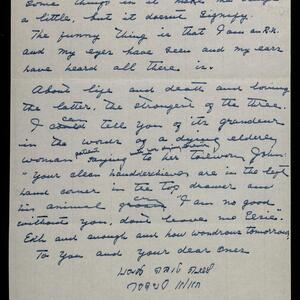 Some things in it make me laugh
a little, but it doesnt signify.
The funny thing is that I am an R.N.
and my eyes have seen and my ears
have heard all there is.
About life and death and loving
the latter, the strongest of the three.
I can tell you of its grandeur
in the words of a dying elderly
woman patient saying to her careworn John
"your clean handkerchieves are in the left
hand corner in the top drawer and
his animal cry "I am no good
without you, dont leave me Essie.
Esth and enough and how wondrous tomorrow,
To you and your dear ones